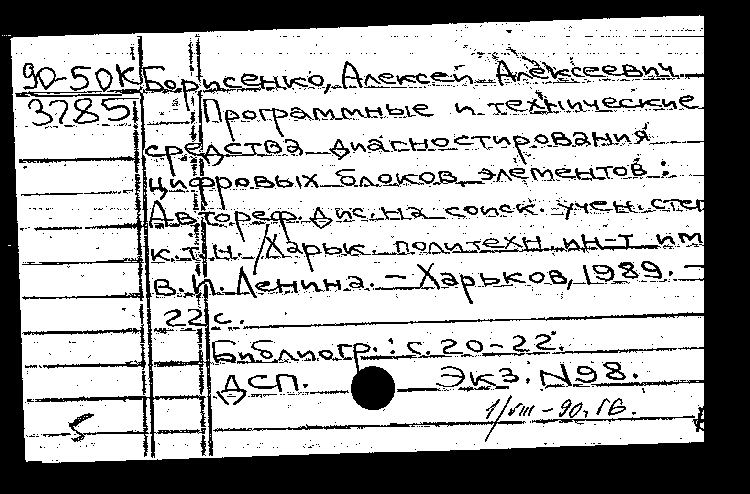 90-50К Борисенко, Алексей Алексеевич
3785 Программные и технические
средства диагностирования
цифровых блоков, элементов:
Автореф. дис. на соиск. учен. степ
к.т.н. / Харьк. политехн. ин-т им
В.И. Ленина. – Харьков, 1989. –
22 с.
Библиогр.: с. 20-22.
ДСП. Экз. N98.
1/VIII-90.
5